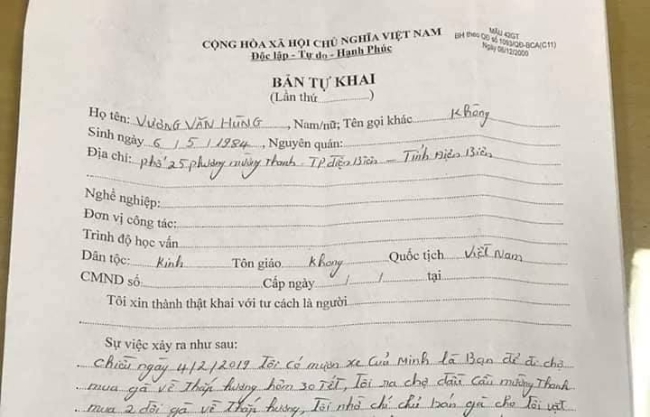 CỘNG HÒA XÃ HỘI CHỦ NGHĨA VIỆT NAM
Độc lập - Tự do - Hạnh Phúc
MẪU 42GT
BH theo QĐ số 1093/QĐ-BCA(C11)
Ngày 08/12/2000
BẢN TỰ KHAI
(Lần thứ ............)
Họ tên: VƯƠNG VĂN HÙNG, Nam/nữ; Tên gọi khác Không
Sinh ngày 6 / 5 / 1984, Nguyên quán:
Địa chỉ: phố 25 phường mường thanh - TP điện Biên - Tỉnh điện Biên
Nghề nghiệp:
Đơn vị công tác:
Trình độ học vấn
Dân tộc: Kinh Tôn giáo Không Quốc tịch Việt Nam
CMND số. Cấp ngày / / tại
Tôi xin thành thật khai với tư cách là người
Sự việc xảy ra như sau:
Chiều ngày 4/2/2019 tôi có mượn xe của Minh là Bạn để đi chợ
mua gà về Thắp hương hôm 30 TẾT, tôi ra chợ đầu cầu mường Thanh
mua 2 đôi gà về Thắp hương, Tôi nhờ chị chủ bán gà cho tôi vặt